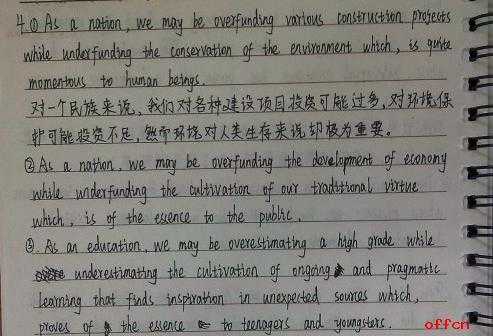 4. ① As a nation, we may be overfunding various construction projects
while underfunding the conservation of the environment which, is quite
momentous to human beings.
对一个民族来说，我们对各种建设项目投资可能过多，对环境保
护可能投资不足，然而环境对人类生存来说却极为重要。
② As a nation, we may be overfunding the development of economy
while underfunding the cultivation of our traditional virtue
which, is of the essence to the public.
③. As an education, we may be overestimating a high grade while
underestimating the cultivation of ongoing and pragmatic
learning that finds inspiration in unexpected sources which,
proves of the essence to teenagers and youngsters.
offcn